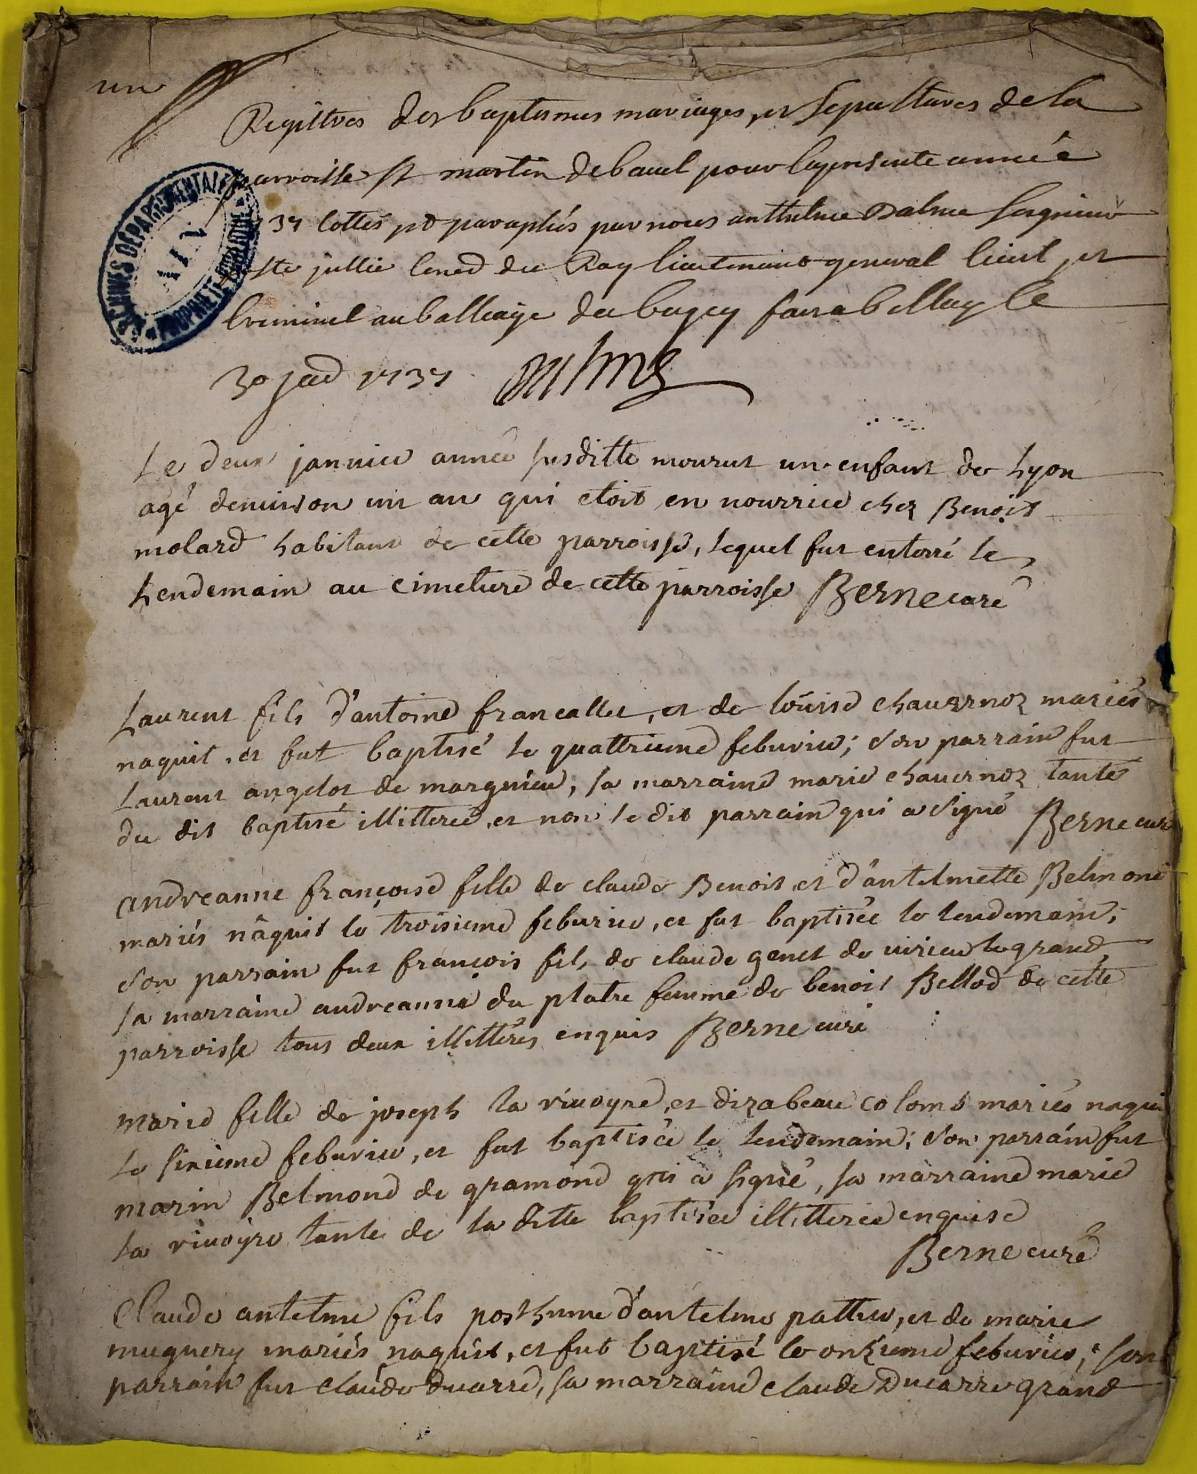 un
Registres des baptesmes mariages, et sepultures de la
parroisse st martin de bavel pour la presente année
37 cottés et paraphés par nous anthelme Dalme seigneur
jullie du Roy lieutenant general civil, et
criminel au balliage du bugey fait a belley le
30 1737 Dalme
ARCHIVES DÉPARTEMENTALES
AIN
PROPRIÉTÉ PUBLIQUE
Le deux janvier année susditte mourut un enfant de Lyon
agé denviron un an qui etoit en nourrice chez Benoit
molard habitant de cette parroisse, lequel fut enterré le
Lendemain au cimetiere de cette parroisse Berne curé
Laurent fils d'antoine francallet, et de loüise chavernoz mariés
naquit, et fut baptisé le quattrieme febvrier; son parrain fut
Laurent angelot de margnieu, sa marraine marie chavernoz tante
du dit baptisé illitteré, et non le dit parrain qui a signé Berne curé
andréanne françoise fille de claude Benoit et d'antelmette Belmond
mariés nâquit le troisieme febvrier, et fut baptisée le lendemain;
son parrain fut françois fils de claude genet de virieu le grand,
sa marraine andréanne du platre femme de benoit Bellod de cette
parroisse tous deux illitterés enquis Berne curé
marie fille de joseph la rivoyre, et dizabeau colomb mariés naquit
le sixieme febvrier, et fut baptisée le lendemain; son parrain fut
marin Belmond de gramond qui a signé, sa marraine marie
la rivoyre tante de la ditte baptisée illitterée enquise
Berne curé
Claude antelme fils posthume d'antelme pattu, et de marie
muguery mariés naquit, et fut baptisé le onzieme febvrier; son
parrain fut claude ducarre, sa marraine claude Ducarre grand